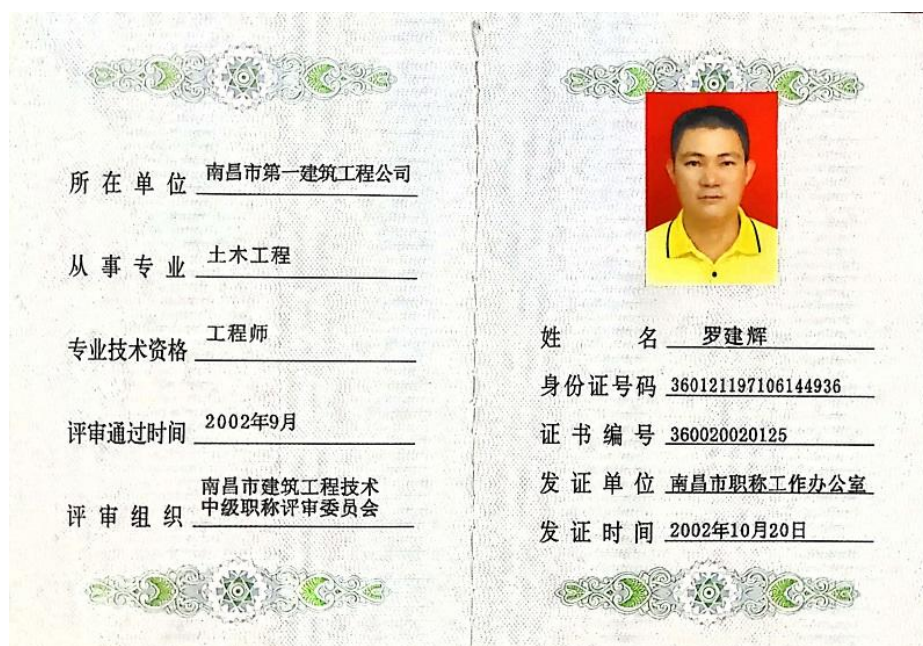 所在单位 南昌市第一建筑工程公司
从事专业 土木工程
专业技术资格 工程师
评审通过时间 2002年9月
评审组织 南昌市建筑工程技术
中级职称评审委员会
姓名 罗建辉
身份证号码 360121197106144936
证书编号 360020020125
发证单位 南昌市职称工作办公室
发证时间 2002年10月20日